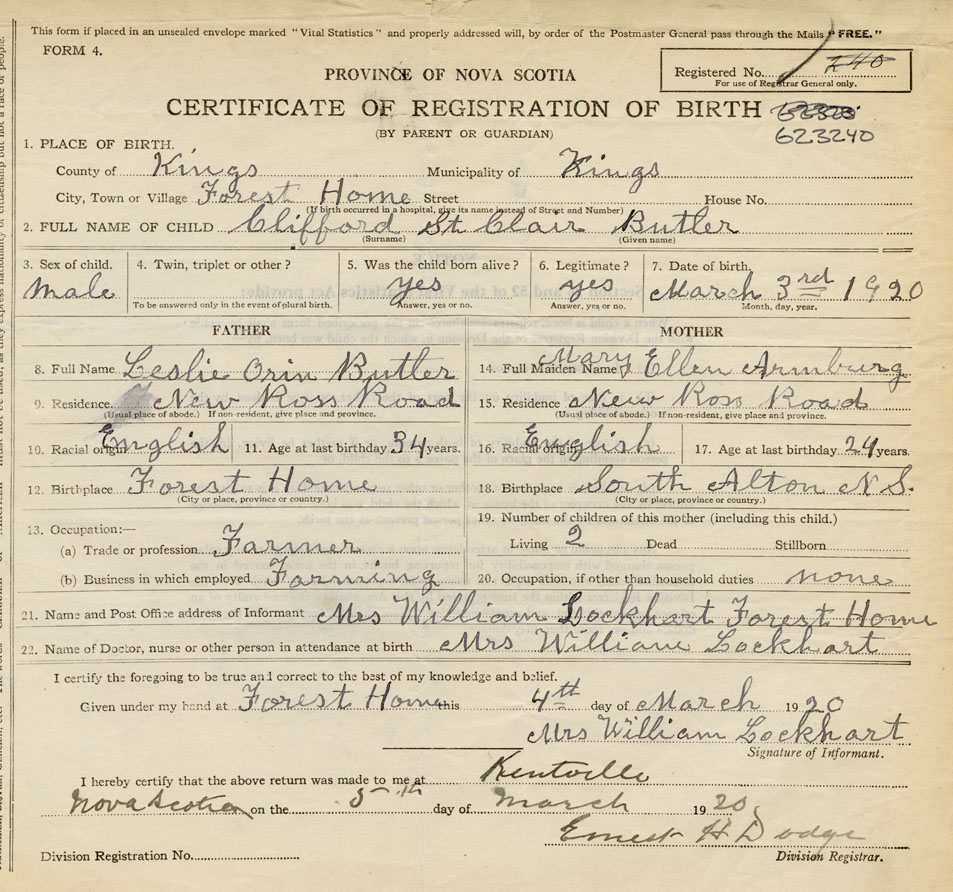 This form if placed in an unsealed envelope marked "Vital Statistics" and properly addressed will, by order of the Postmaster General pass through the Mails "FREE."
FORM 4.
Registered No. 240
For use of Registrar General only.
PROVINCE OF NOVA SCOTIA
CERTIFICATE OF REGISTRATION OF BIRTH
623240
(BY PARENT OR GUARDIAN)
1. PLACE OF BIRTH.
County of Kings Municipality of Kings
City, Town or Village Forest Home Street House No.
(If birth occurred in a hospital, give its name instead of Street and Number)
2. FULL NAME OF CHILD Clifford St Clair Butler
(Surname) (Given name)
3. Sex of child. 4. Twin, triplet or other? 5. Was the child born alive? 6. Legitimate? 7. Date of birth.
Male yes yes March 3rd 1920
To be answered only in the event of plural birth. Answer, yes or no. Answer, yes or no. Month, day, year.
FATHER MOTHER
8. Full Name Leslie Orin Butler 14. Full Maiden Name Mary Ellen Armburg
9. Residence New Ross Road 15. Residence New Ross Road
(Usual place of abode.) If non-resident, give place and province. (Usual place of abode.) If non-resident, give place and province.
10. Racial origin English 11. Age at last birthday 34 years. 16. Racial origin English 17. Age at last birthday 24 years.
12. Birthplace Forest Home 18. Birthplace South Alton N.S.
(City or place, province or country.) (City or place, province or country.)
13. Occupation:— 19. Number of children of this mother (including this child.)
(a) Trade or profession Farmer Living 2 Dead Stillborn
(b) Business in which employed Farming 20. Occupation, if other than household duties none
21. Name and Post Office address of Informant Mrs William Lockhart Forest Home
22. Name of Doctor, nurse or other person in attendance at birth Mrs William Lockhart
I certify the foregoing to be true and correct to the best of my knowledge and belief.
Given under my hand at Forest Home this 4th day of March 1920
Mrs William Lockhart
Signature of Informant.
I hereby certify that the above return was made to me at Kentville
Nova Scotia on the 5th day of March 1920
Ernest H Dodge
Division Registration No. Division Registrar.